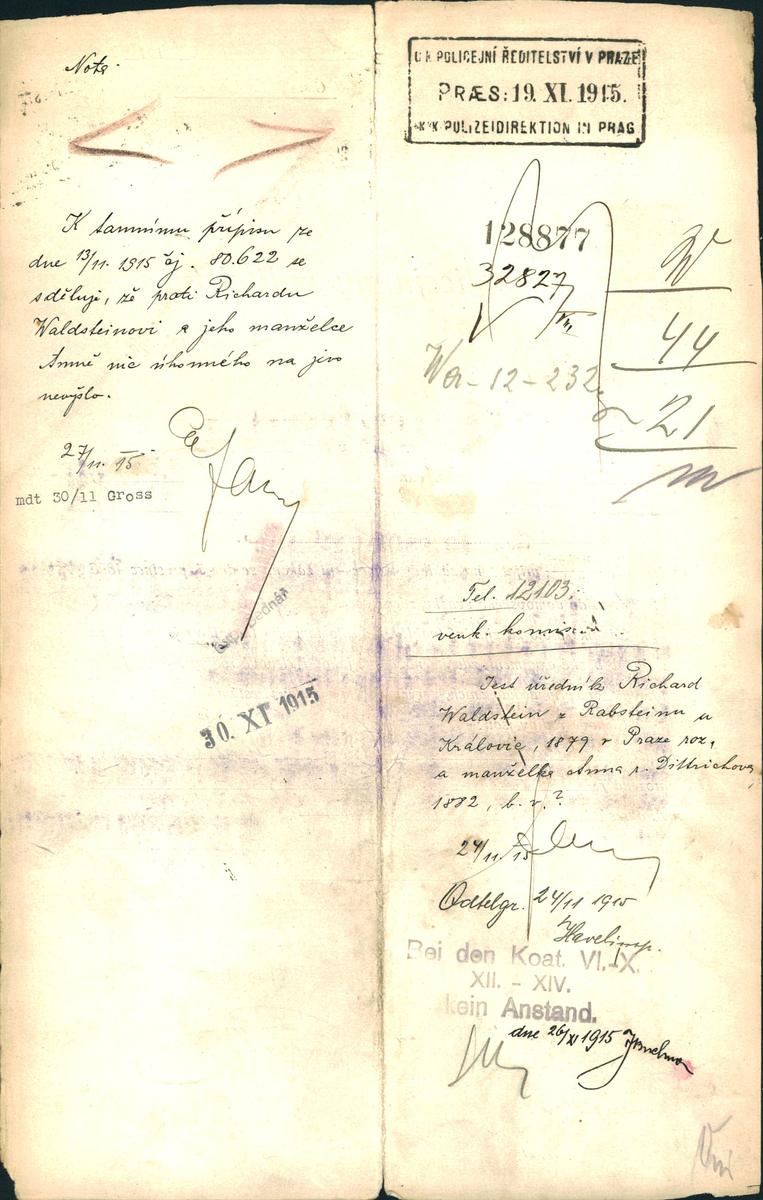 Nota.
K tamnímu přípisu ze
dne 13/11. 1915 čj. 80.622 se
sděluje, že proti Richardu
Waldsteinovi a jeho manželce
Anně nic úhonného na jevo
nevyšlo.
27/11. 15.
mdt 30/11 Gross
Bednář
30. XI 1915
C.K. POLICEJNÍ ŘEDITELSTVÍ V PRAZE
PRÆS: 19. XI. 1915.
K.K. POLIZEIDIREKTION IN PRAG
128877
32827
44
W - 12 - 232
21
Tel. 12103.
venk. komisař
Jest úředník Richard
Waldstein z Rabsteinu u
Královic, 1879 v Praze roz.
a manželka Anna r. Dittrichova
1882, b. v.?
24/11. 15
Odtelgr. 24/11 1915
Havel
Bei den Koat. VI.-X.
XII. - XIV.
kein Anstand.
dne 26/XI 1915